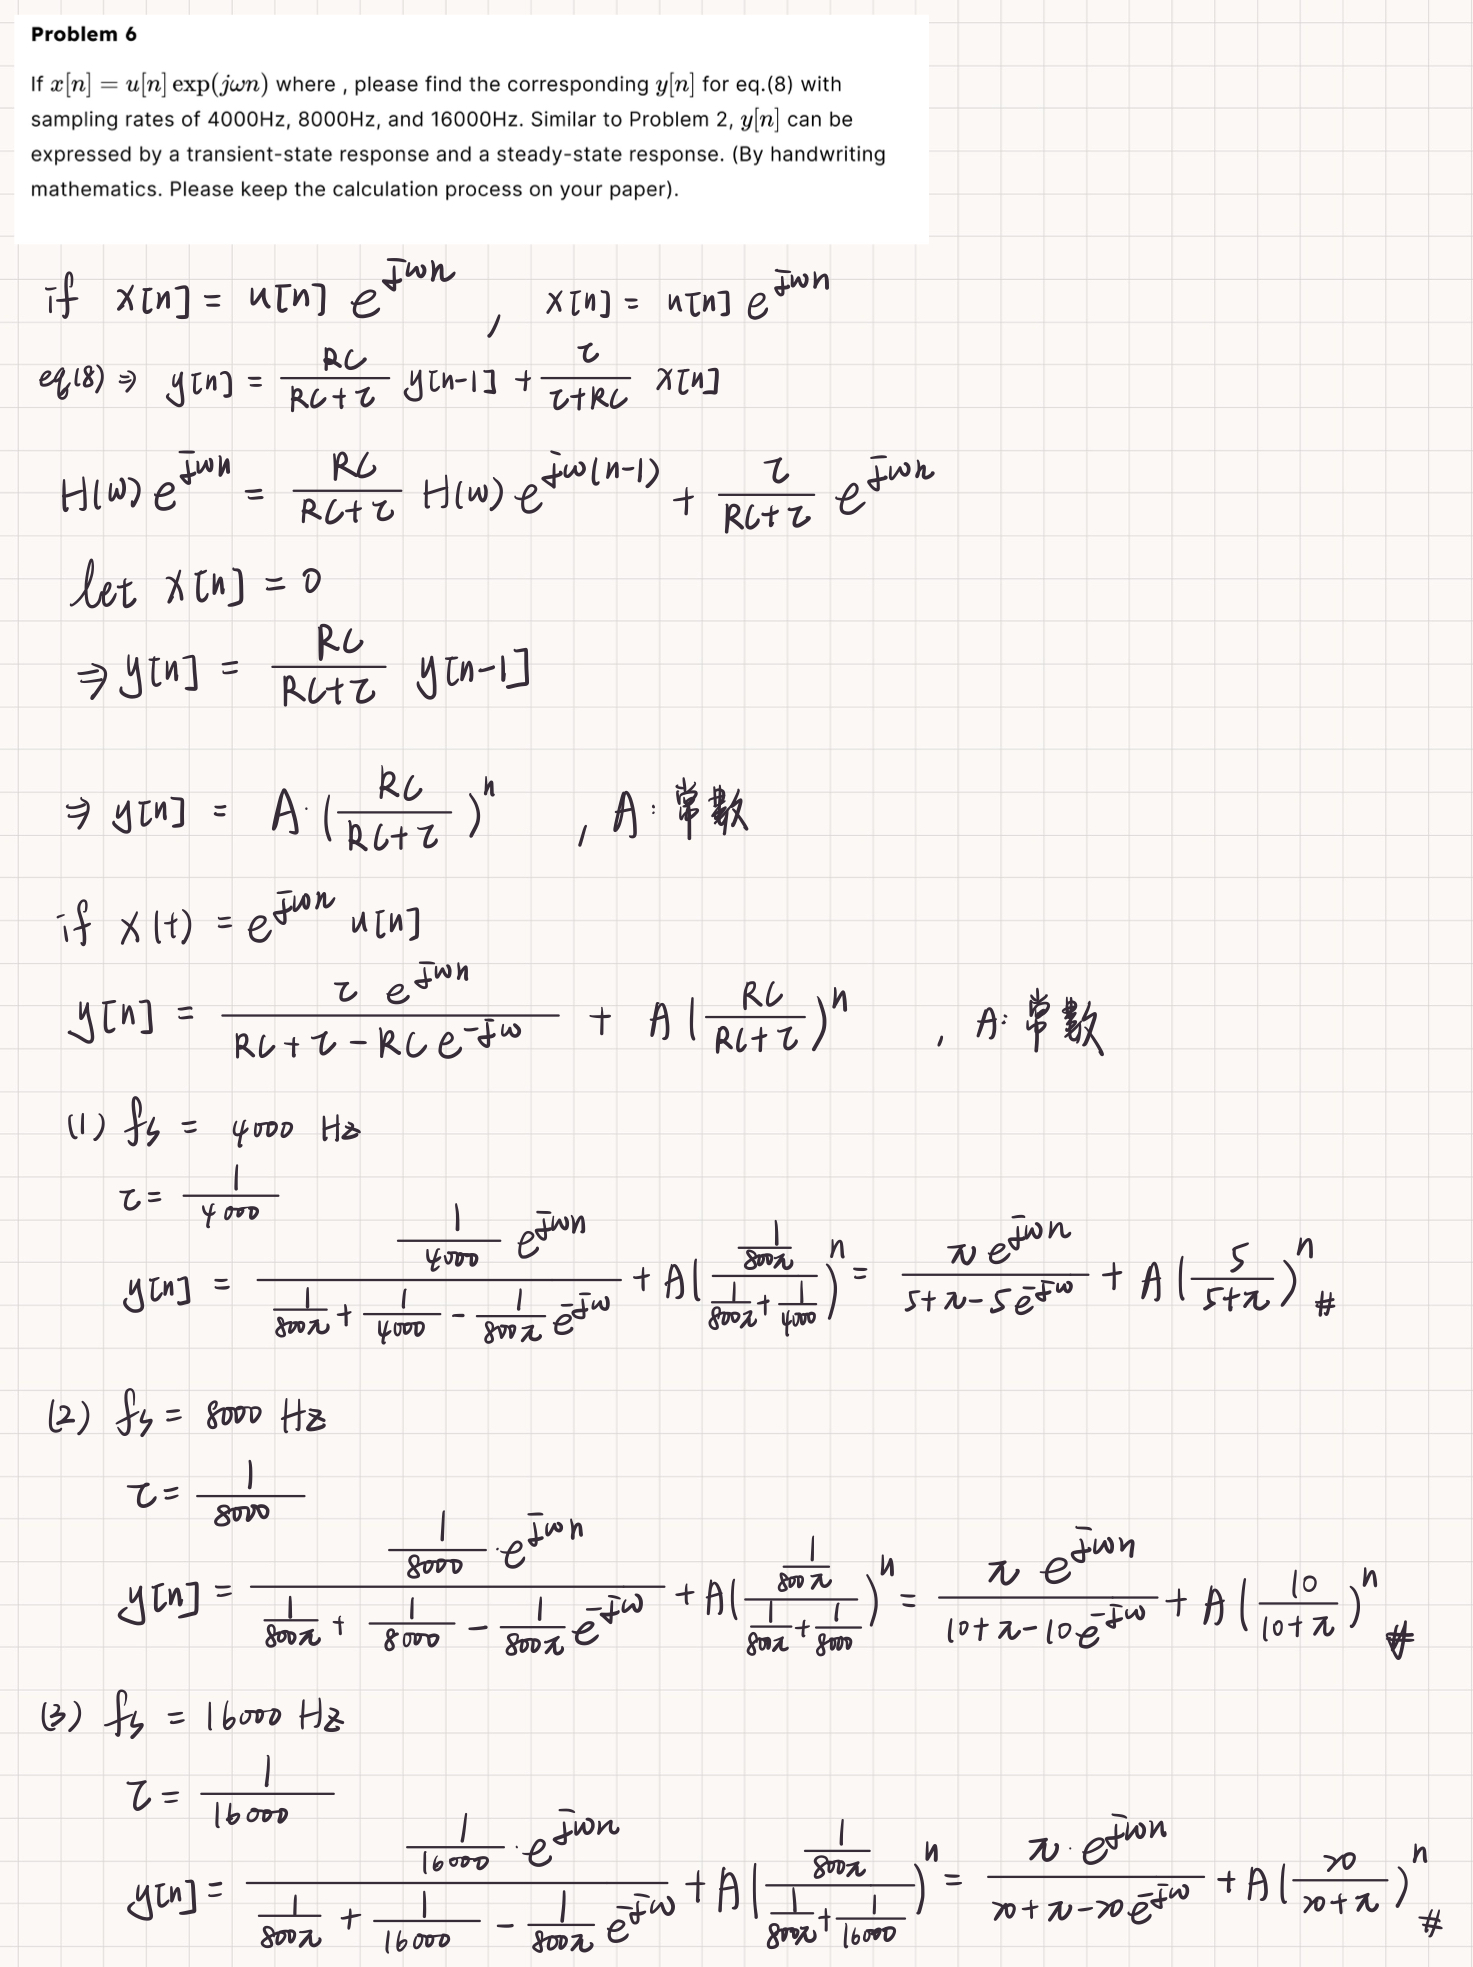 Problem 6
If x[n] = u[n] exp(jωn) where , please find the corresponding y[n] for eq.(8) with
sampling rates of 4000Hz, 8000Hz, and 16000Hz. Similar to Problem 2, y[n] can be
expressed by a transient-state response and a steady-state response. (By handwriting
mathematics. Please keep the calculation process on your paper).
if x[n] = u[n] e^{jωn} , x[n] = u[n] e^{jωn}
eq(8) ⇒ y[n] = \frac{RC}{RC+τ} y[n-1] + \frac{τ}{τ+RC} x[n]
H(ω) e^{jωn} = \frac{RC}{RC+τ} H(ω) e^{jω(n-1)} + \frac{τ}{RC+τ} e^{jωn}
let x[n] = 0
⇒ y[n] = \frac{RC}{RC+τ} y[n-1]
⇒ y[n] = A·(\frac{RC}{RC+τ})^n , A: 常數
if x(t) = e^{jωn} u[n]
y[n] = \frac{τ e^{jωn}}{RC+τ-RC e^{-jω}} + A(\frac{RC}{RC+τ})^n , A: 常數
(1) fs = 4000 Hz
τ = \frac{1}{4000}
y[n] = \frac{\frac{1}{4000} e^{jωn}}{\frac{1}{800π}+\frac{1}{4000}-\frac{1}{800π} e^{-jω}} + A(\frac{\frac{1}{800π}}{\frac{1}{800π}+\frac{1}{4000}})^n = \frac{π e^{jωn}}{5+π-5e^{-jω}} + A(\frac{5}{5+π})^n #
(2) fs = 8000 Hz
τ = \frac{1}{8000}
y[n] = \frac{\frac{1}{8000}·e^{jωn}}{\frac{1}{800π}+\frac{1}{8000}-\frac{1}{800π} e^{-jω}} + A(\frac{\frac{1}{800π}}{\frac{1}{800π}+\frac{1}{8000}})^n = \frac{π e^{jωn}}{10+π-10e^{-jω}} + A(\frac{10}{10+π})^n #
(3) fs = 16000 Hz
τ = \frac{1}{16000}
y[n] = \frac{\frac{1}{16000}·e^{jωn}}{\frac{1}{800π}+\frac{1}{16000}-\frac{1}{800π} e^{-jω}} + A(\frac{\frac{1}{800π}}{\frac{1}{800π}+\frac{1}{16000}})^n = \frac{π·e^{jωn}}{20+π-20e^{-jω}} + A(\frac{20}{20+π})^n #